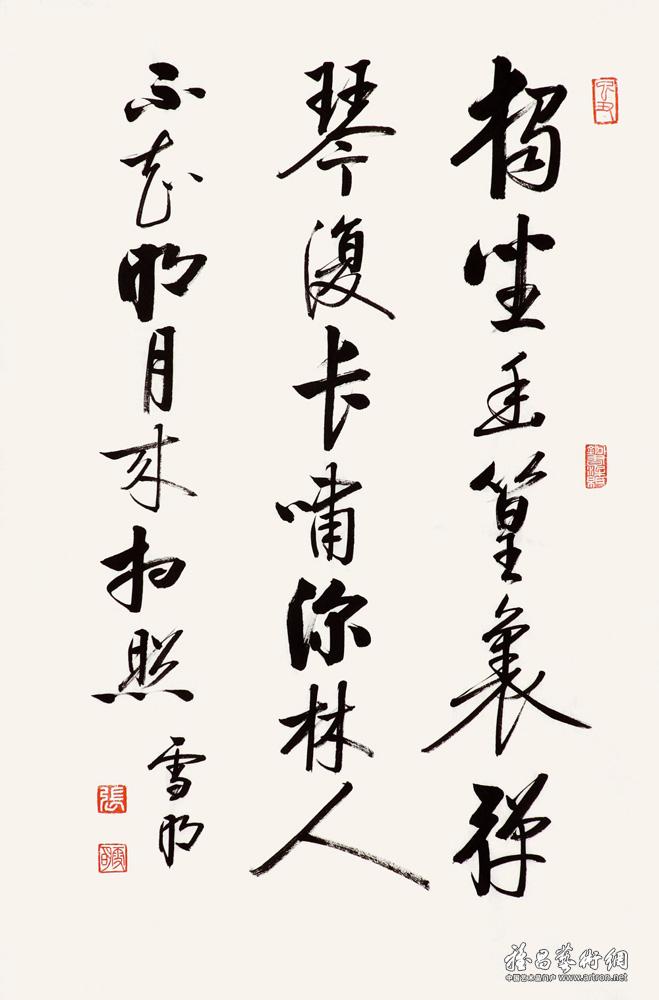 獨坐幽篁裏彈
琴復長嘯深林人
不知明月來相照
雪明
張
雅昌藝術網
中国艺术品门户 www.artron.net